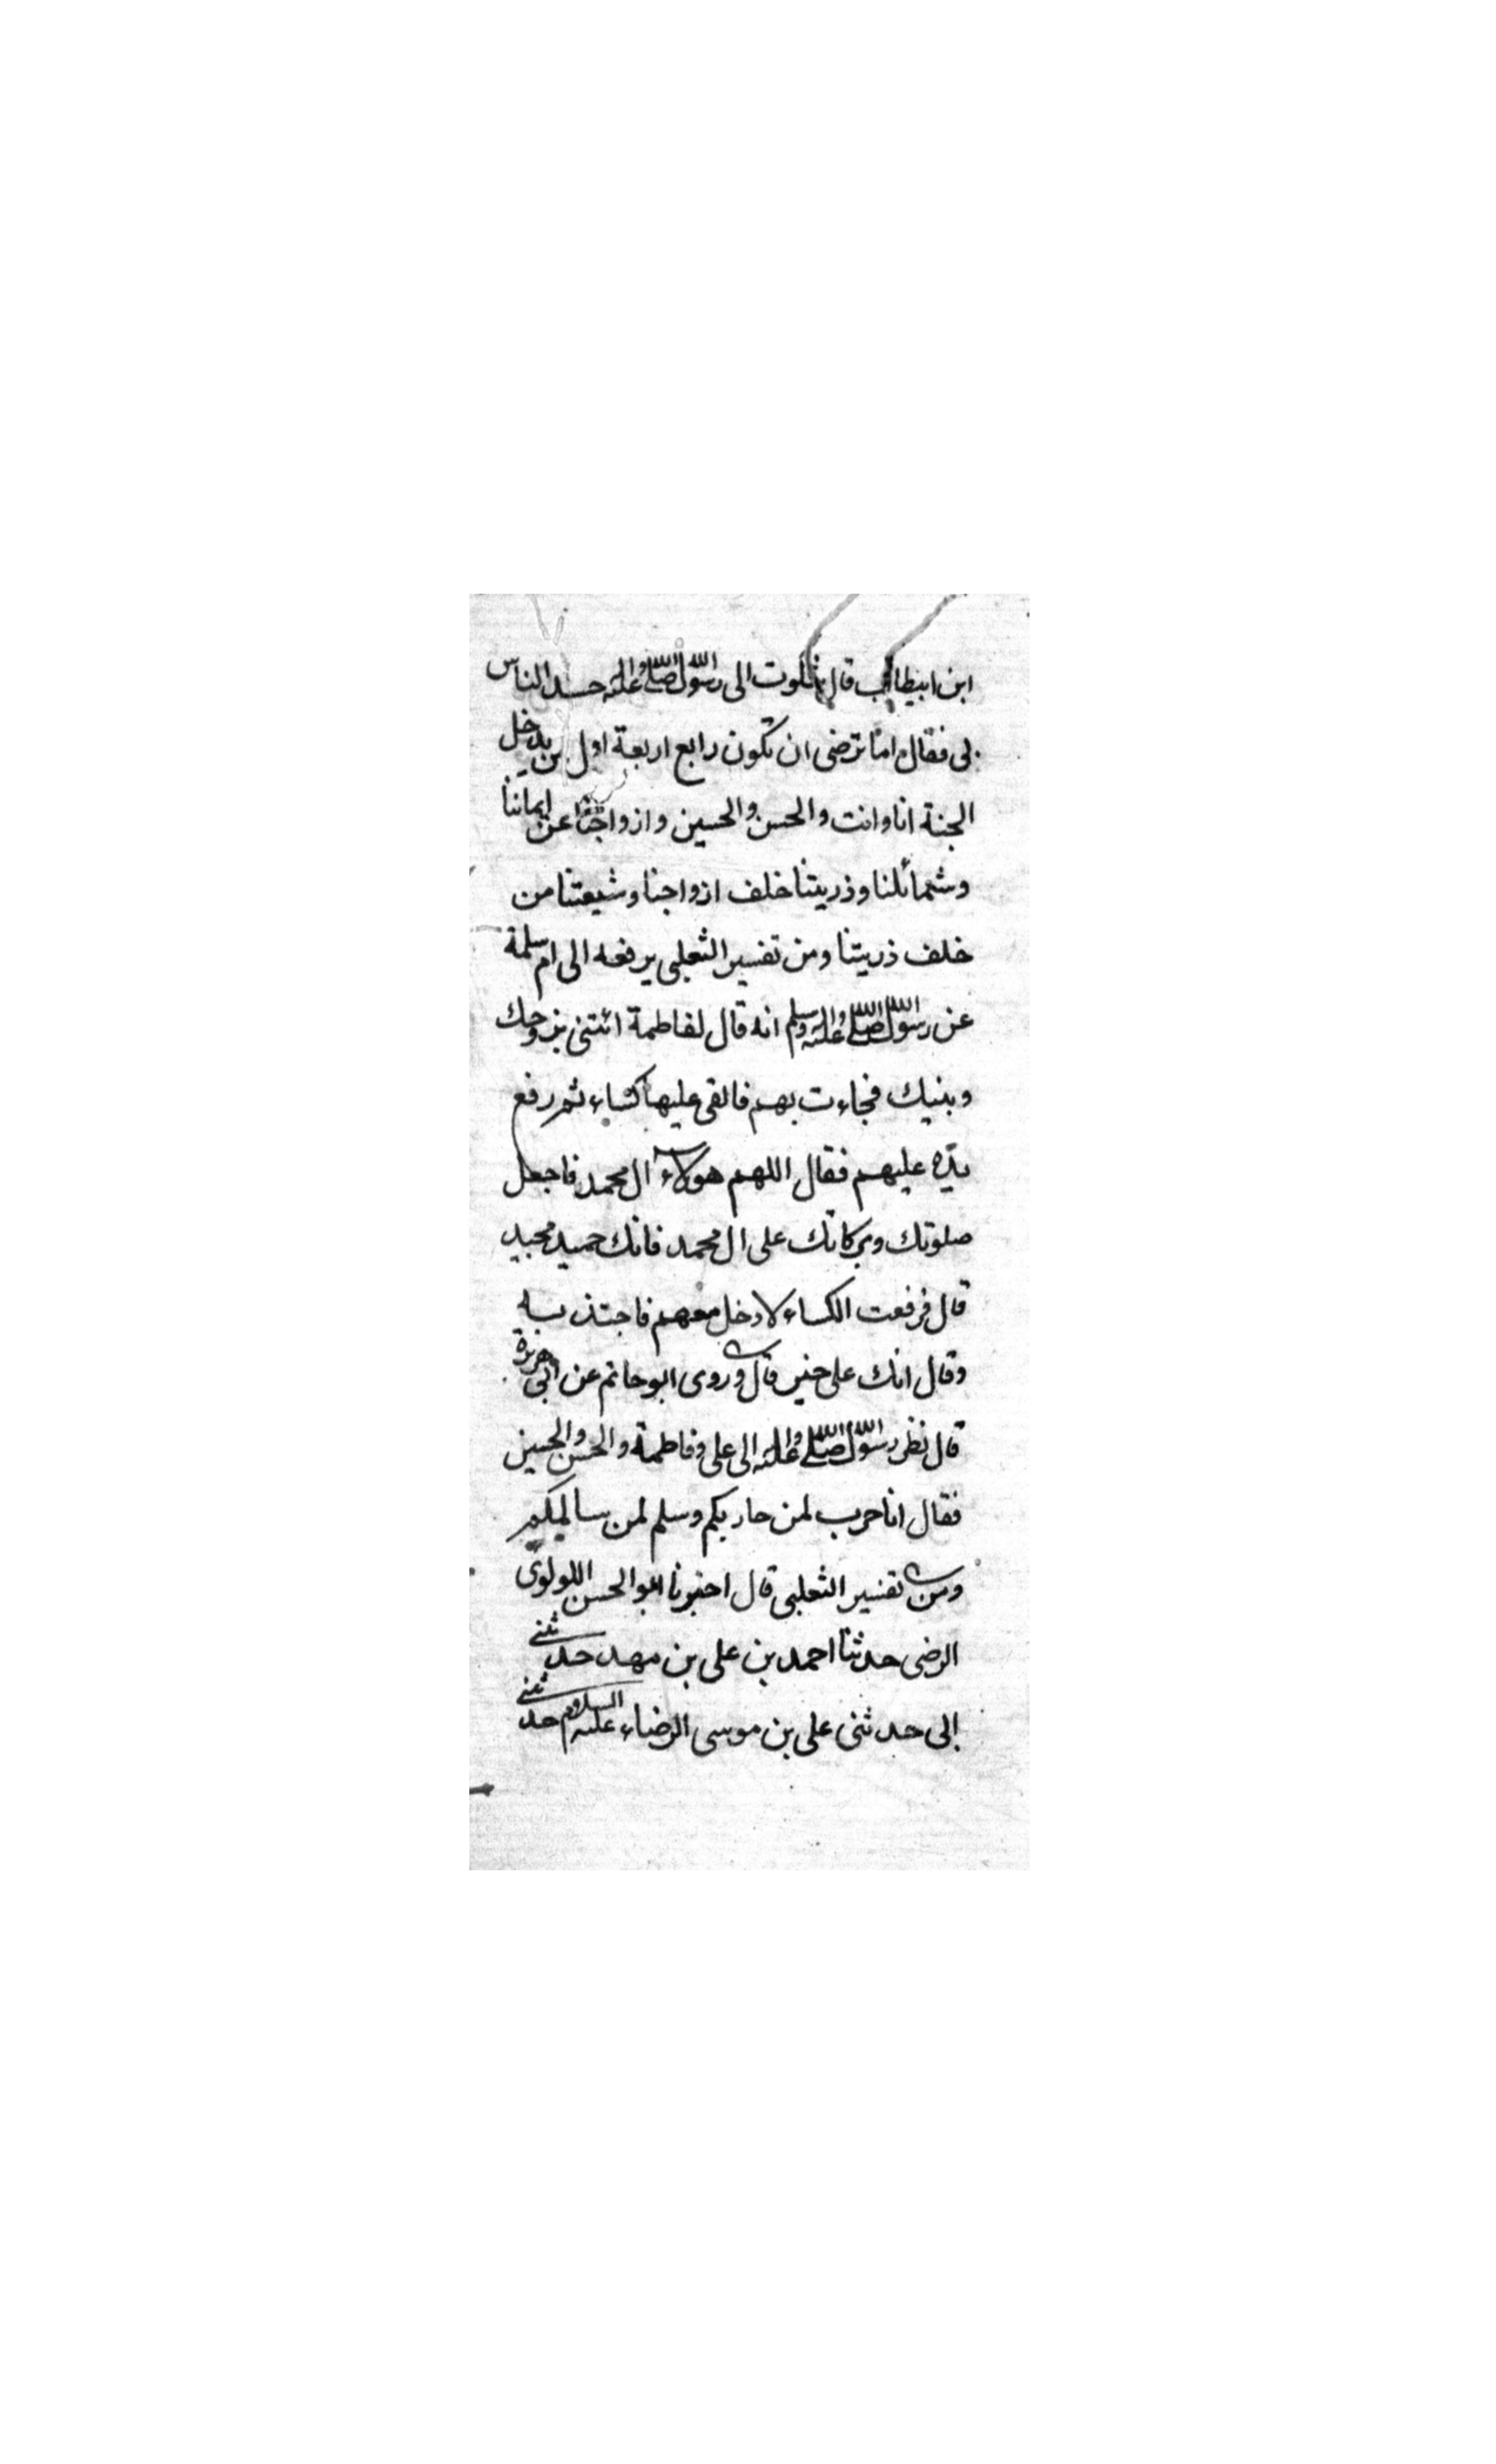 ابن ابيطالب قال شكوت الى رسول الله صلى الله عليه واله حسد الناس
لى فقال اما ترضى ان تكون رابع اربعة اول من يدخل
الجنة انا وانت والحسن والحسين وازواجنا عن ايماننا
وشمائلنا وذريتنا خلف ازواجنا وشيعتنا من
خلف ذريتنا ومن تفسير الثعلبى يرفعه الى ام سلمة
عن رسول الله صلى الله عليه واله وسلم انه قال لفاطمة ائتنى بزوجك
وبنيك فجاءت بهم فالقى عليها كساء ثم رفع
يده عليهم فقال اللهم هولاء ال محمد فاجعل
صلوتك وبركاتك على ال محمد فانك حميد مجيد
قال فرفعت الكساء لادخل معهم فاجتذبه
وقال انك على خير قال وروى ابو حاتم عن ابى هريرة
قال نظر رسول الله صلى الله عليه واله الى على وفاطمة والحسن والحسين
فقال انا حرب لمن حاربكم وسلم لمن سالمكم
ومن تفسير الثعلبى قال اخبرنا ابو الحسن اللولوى
الرضى حدثنا احمد بن على بن مهد حدثنى
ابى حدثنى على بن موسى الرضاء عليه السلام حدثنى